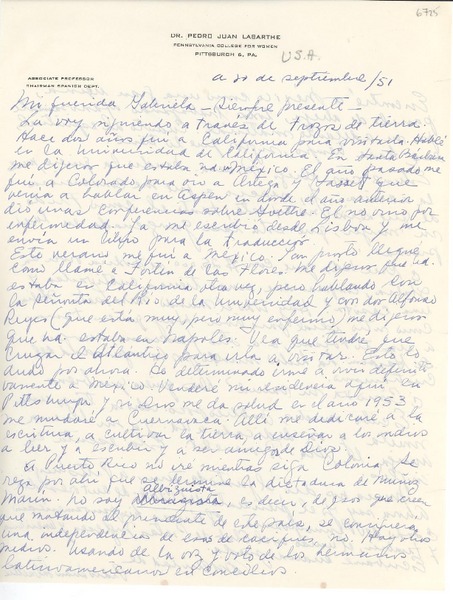 6725
DR. PEDRO JUAN LABARTHE
PENNSYLVANIA COLLEGE FOR WOMEN
PITTSBURGH 6, PA.
U.S.A.
ASSOCIATE PROFESSOR
CHAIRMAN SPANISH DEPT.
a 20 de septiembre/51
Mi querida Gabriela – siempre presente –
La voy siguiendo a través de trozos de tierra.
Hace dos años fui a California para visitarla. Hablé
en la universidad de California. En Santa Barbara
me dijeron que estaba en Mexico. El año pasado me
fui a Colorado para oir a Ortega y Gasset que
venía a hablar en Aspen en donde el año anterior
dio unas conferencias sobre Goethe. El no vino por
enfermedad. Ya me escribió desde Lisboa y me
envía un libro para la traducción.
Este verano me fui a México. Tan pronto llegué
como llamé a Fortín de las Flores. Me dijeron que ud.
estaba en California otra vez, pero hablando con
la señorita del Rio de la Universidad y con don Alfonso
Reyes (que está muy, pero muy enfermo) me dijeron
que ud. estaba en Nápoles. Vea que tendré que
cruzar el Atlántico para irla a visitar. Esto lo
dudo por ahora. He determinado irme a vivir definiti-
vamente a Mexico. Venderé mi residencia aquí en
Pittsburgh y si Dios me da salud en el año 1953
me mudaré a Cuernavaca. Allí me dedicaré a la
escritura, a cultivar la tierra, a enseñar a los indios
a leer y a escribir y a ser amigos de Dios.
A Puerto Rico no iré mientras siga Colonia. Se
reza por ahí que se termine la dictadura de Muñoz
Marín. No soy Albizuista, es decir, de esos que creen
que matando al presidente de este país, se conseguirá
una independencia de esos de caciques, no. Hay otros
medios. Usando de la voz y voto de los hermanos
latinoamericanos en concilios.